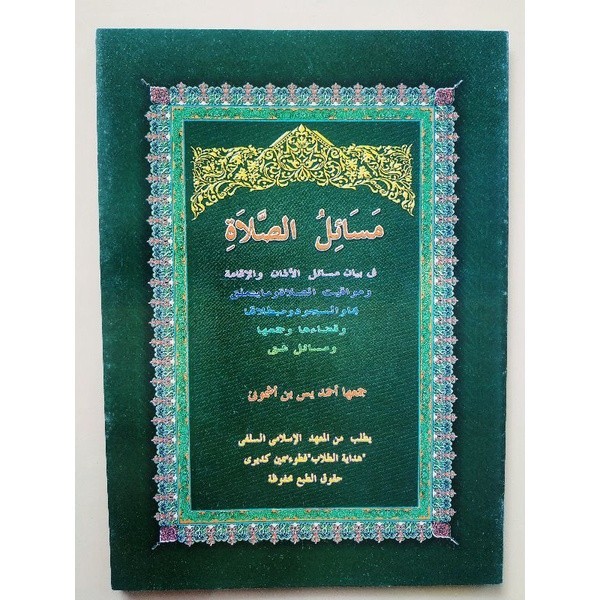 مَسَائِلُ الصَّلَاةِ
فى بيان مسائل الأذان والإقامة
ومواقيت الصلاة وما يتعلق
بها والسجود ومبطلاتها
وقضاءها وجمعها
ومسائل شتى
جمعها أحمد يس بن أسمونى
يطلب من المعهد الإسلامى السلفى
"هداية الطلاب" فطوء كديرى
حقوق الطبع محفوظة